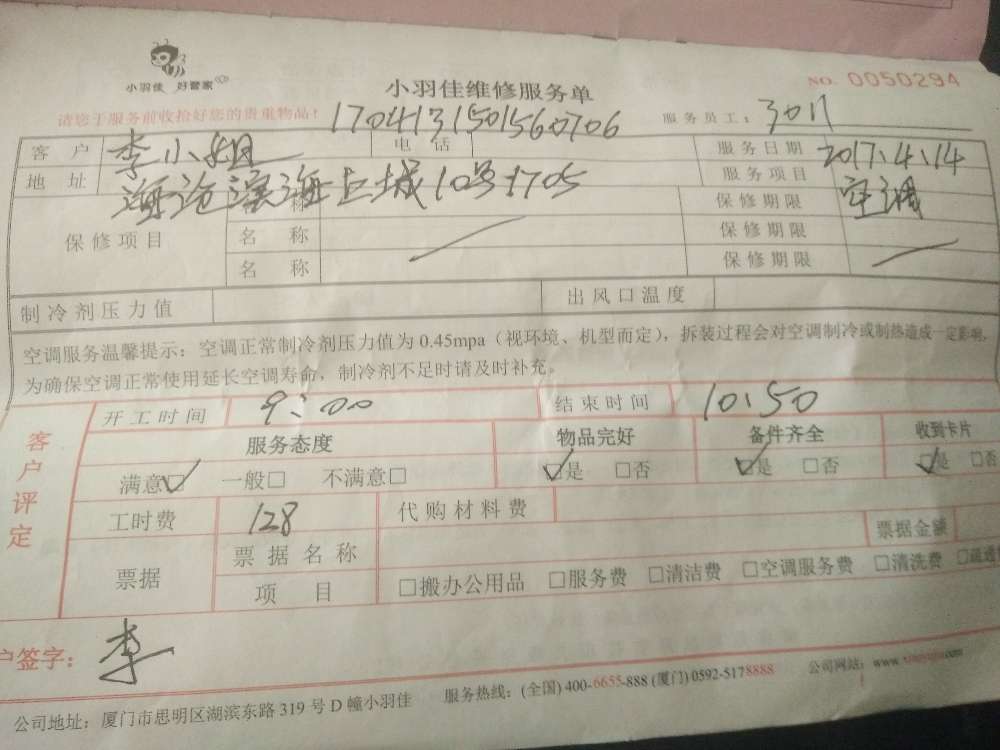 小羽佳 好管家
小羽佳维修服务单
NO. 0050294
请您于服务前收拾好您的贵重物品!
170413150156 0706
服务员工: 3011
客户 李小姐 电话 服务日期 2017.4.14
地址 海沧滨海上城10号1705 服务项目 空调
保修项目 名称 保修期限
名称 保修期限
名称 保修期限
制冷剂压力值 出风口温度
空调服务温馨提示:空调正常制冷剂压力值为0.45mpa(视环境、机型而定),拆装过程会对空调制冷或制热造成一定影响,
为确保空调正常使用延长空调寿命,制冷剂不足时请及时补充。
客户评定
开工时间 9:00 结束时间 10:50
服务态度 物品完好 备件齐全 收到卡片
满意☑ 一般□ 不满意□ ☑是 □否 ☑是 □否 ☑是 □否
工时费 128 代购材料费
票据 票据名称 票据金额
项目 □搬办公用品 □服务费 □清洁费 □空调服务费 □清洗费
户签字: 李
公司地址:厦门市思明区湖滨东路319号D幢小羽佳 服务热线:(全国)400-6655-888 (厦门)0592-5178888 公司网站:www.